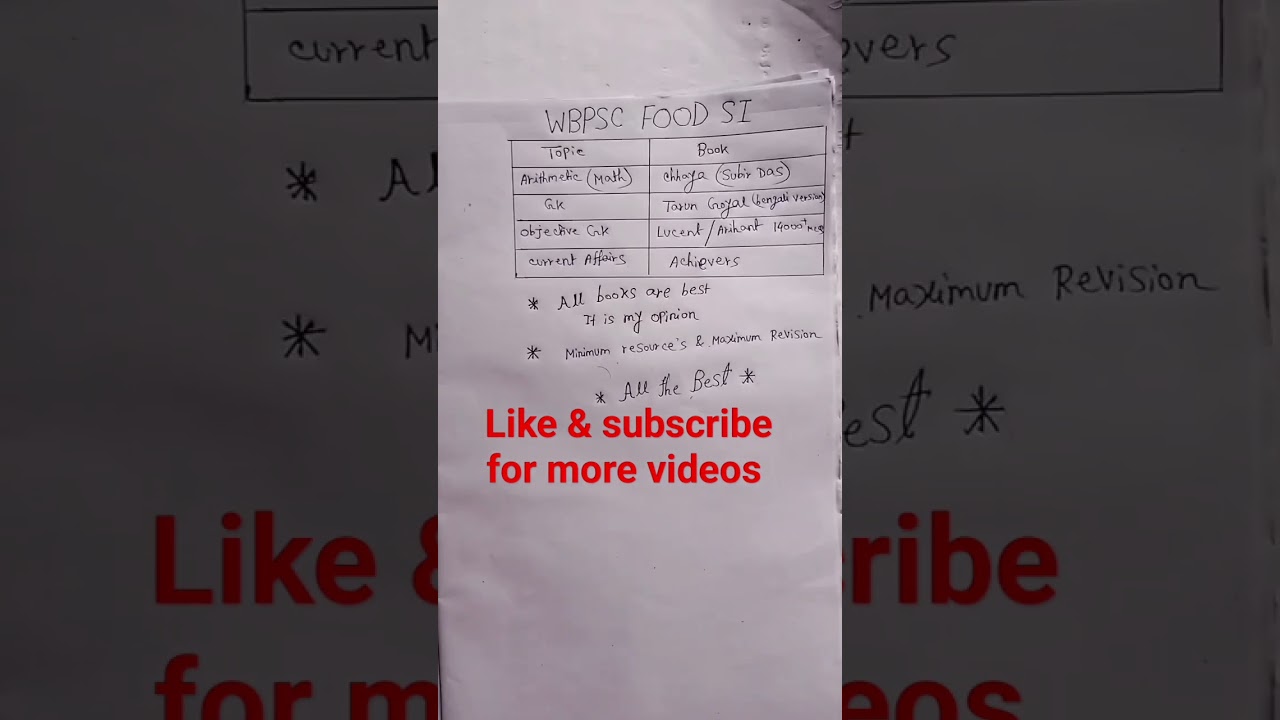 WBPSC FOOD SI
Topic Book
Arithmetic (Math) chhaya (Subir Das)
GK Tarun Goyal (bengali version)
objective GK Lucent / Arihant 14000+ mcq
current Affairs Achievers
* All books are best
It is my opinion
* Minimum resource's & Maximum Revision
* All the Best *
Like & subscribe
for more videos